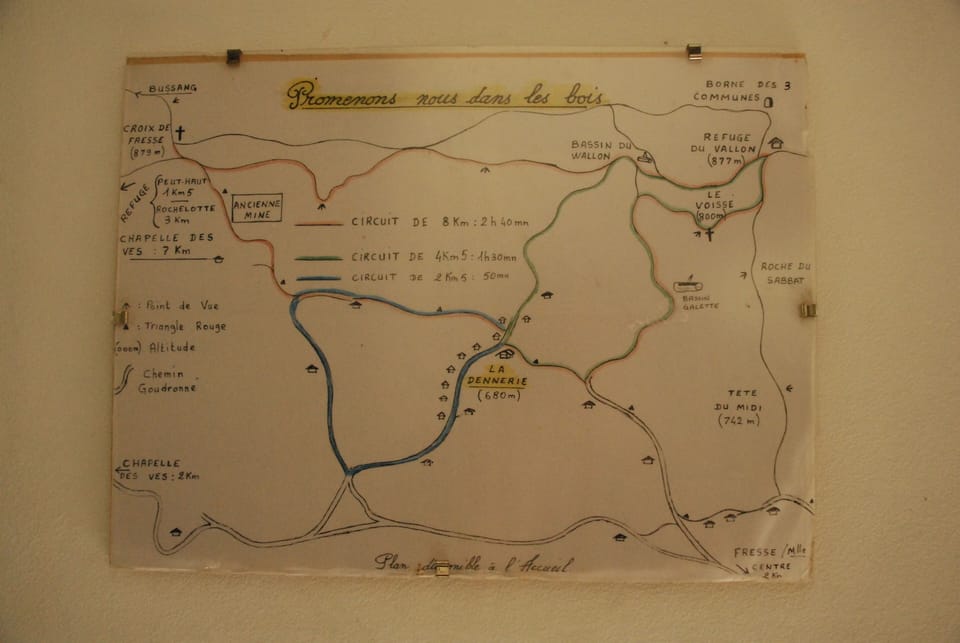 Promenons nous dans les bois
BUSSANG
BORNE DES 3
COMMUNES
CROIX DE
FRESSE
(879 m)
BASSIN DU
WALLON
REFUGE
DU VALLON
(877m)
REFUGE
PEUT-HAUT
1 Km 5
ROCHELOTTE
3 Km
ANCIENNE
MINE
LE
VOISSE
(800m)
CHAPELLE DES
VES : 7 Km
CIRCUIT DE 8 Km : 2 h 40 mn
CIRCUIT DE 4Km5 : 1h30mn
CIRCUIT DE 2 Km5 : 50mn
ROCHE DU
SABBAT
1
BASSIN
GALETTE
: Point de Vue
: Triangle Rouge
(000m) Altitude
Chemin
Goudronné
LA
DENNERIE
(680m)
TETE
DU MIDI
(742 m)
CHAPELLE
DES VES : 2Km
FRESSE / Mlle
CENTRE
2 Km
Plan disponible à l'Accueil